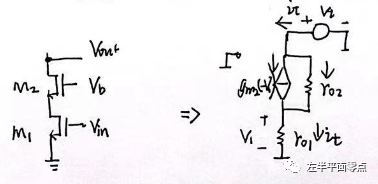 Vout
M2
Vb
M1
Vin
=>
it
+
-
gm2(-V1)
ro2
+
V1
-
ro1
it
左半平面零点